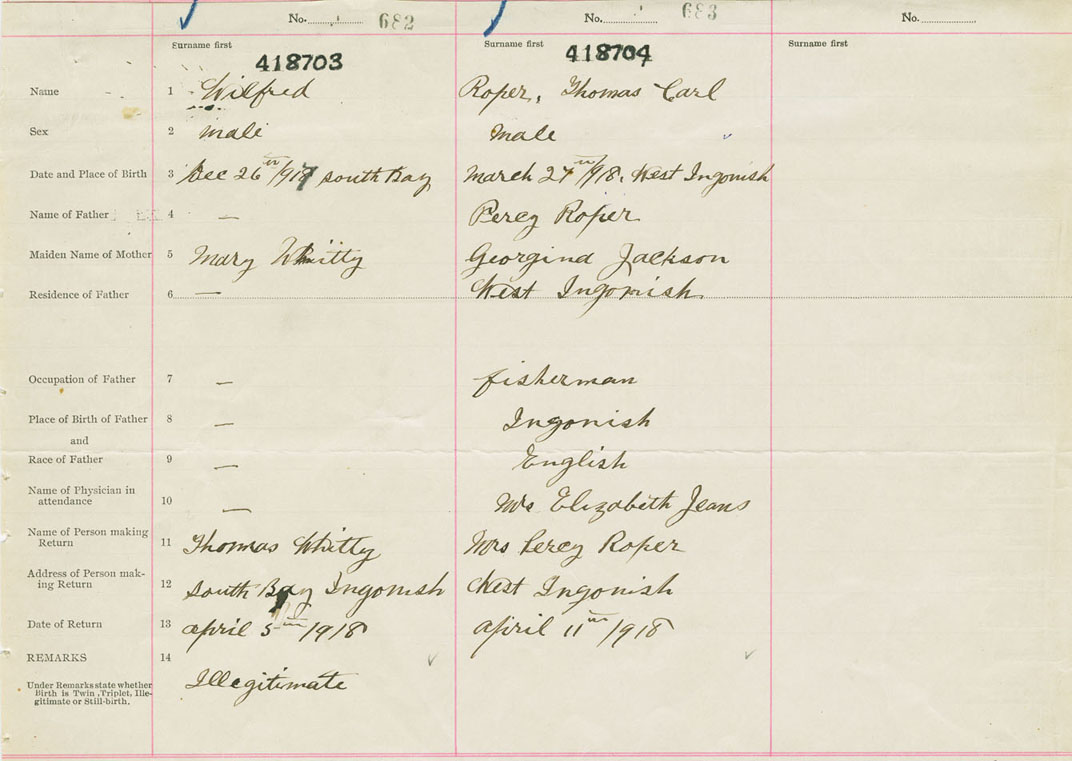 No. 682 No. 683 No.
Surname first Surname first Surname first
418703 418704
Name 1 Wilfred Roper, Thomas Carl
Sex 2 male Male
Date and Place of Birth 3 Dec 26th/1917 South Bay March 27th/918. West Ingonish
Name of Father 4 — Percy Roper
Maiden Name of Mother 5 Mary Whitty Georgina Jackson
Residence of Father 6 — West Ingonish
Occupation of Father 7 — fisherman
Place of Birth of Father 8 — Ingonish
and
Race of Father 9 — English
Name of Physician in
attendance 10 — Mrs Elizabeth Jeans
Name of Person making
Return 11 Thomas Whitty Mrs Percy Roper
Address of Person mak-
ing Return 12 South Bay Ingonish West Ingonish
Date of Return 13 april 5th/1918 april 11th/1918
REMARKS 14
Under Remarks state whether
Birth is Twin, Triplet, Ille-
gitimate or Still-birth.
Illegitimate